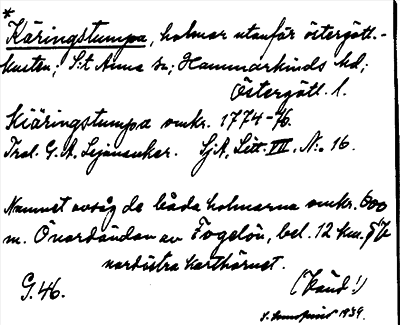 *
Käringstumpa, holmar utanför östergötl.-
kusten; S:t Anna sn; Hammarkinds hd;
Östergötl. l.
Kiäringstumpa omkr. 1774-76.
Trol. G. A. Lejonanckar. SjA, Litt. III, N:o 16.
Namnet avsåg de båda holmarna omkr. 600
m. Ö nordändan av Fogelön, bel. 12 km.
nordöstra karthörnet.
G. 46. (Vänd!)
1939.